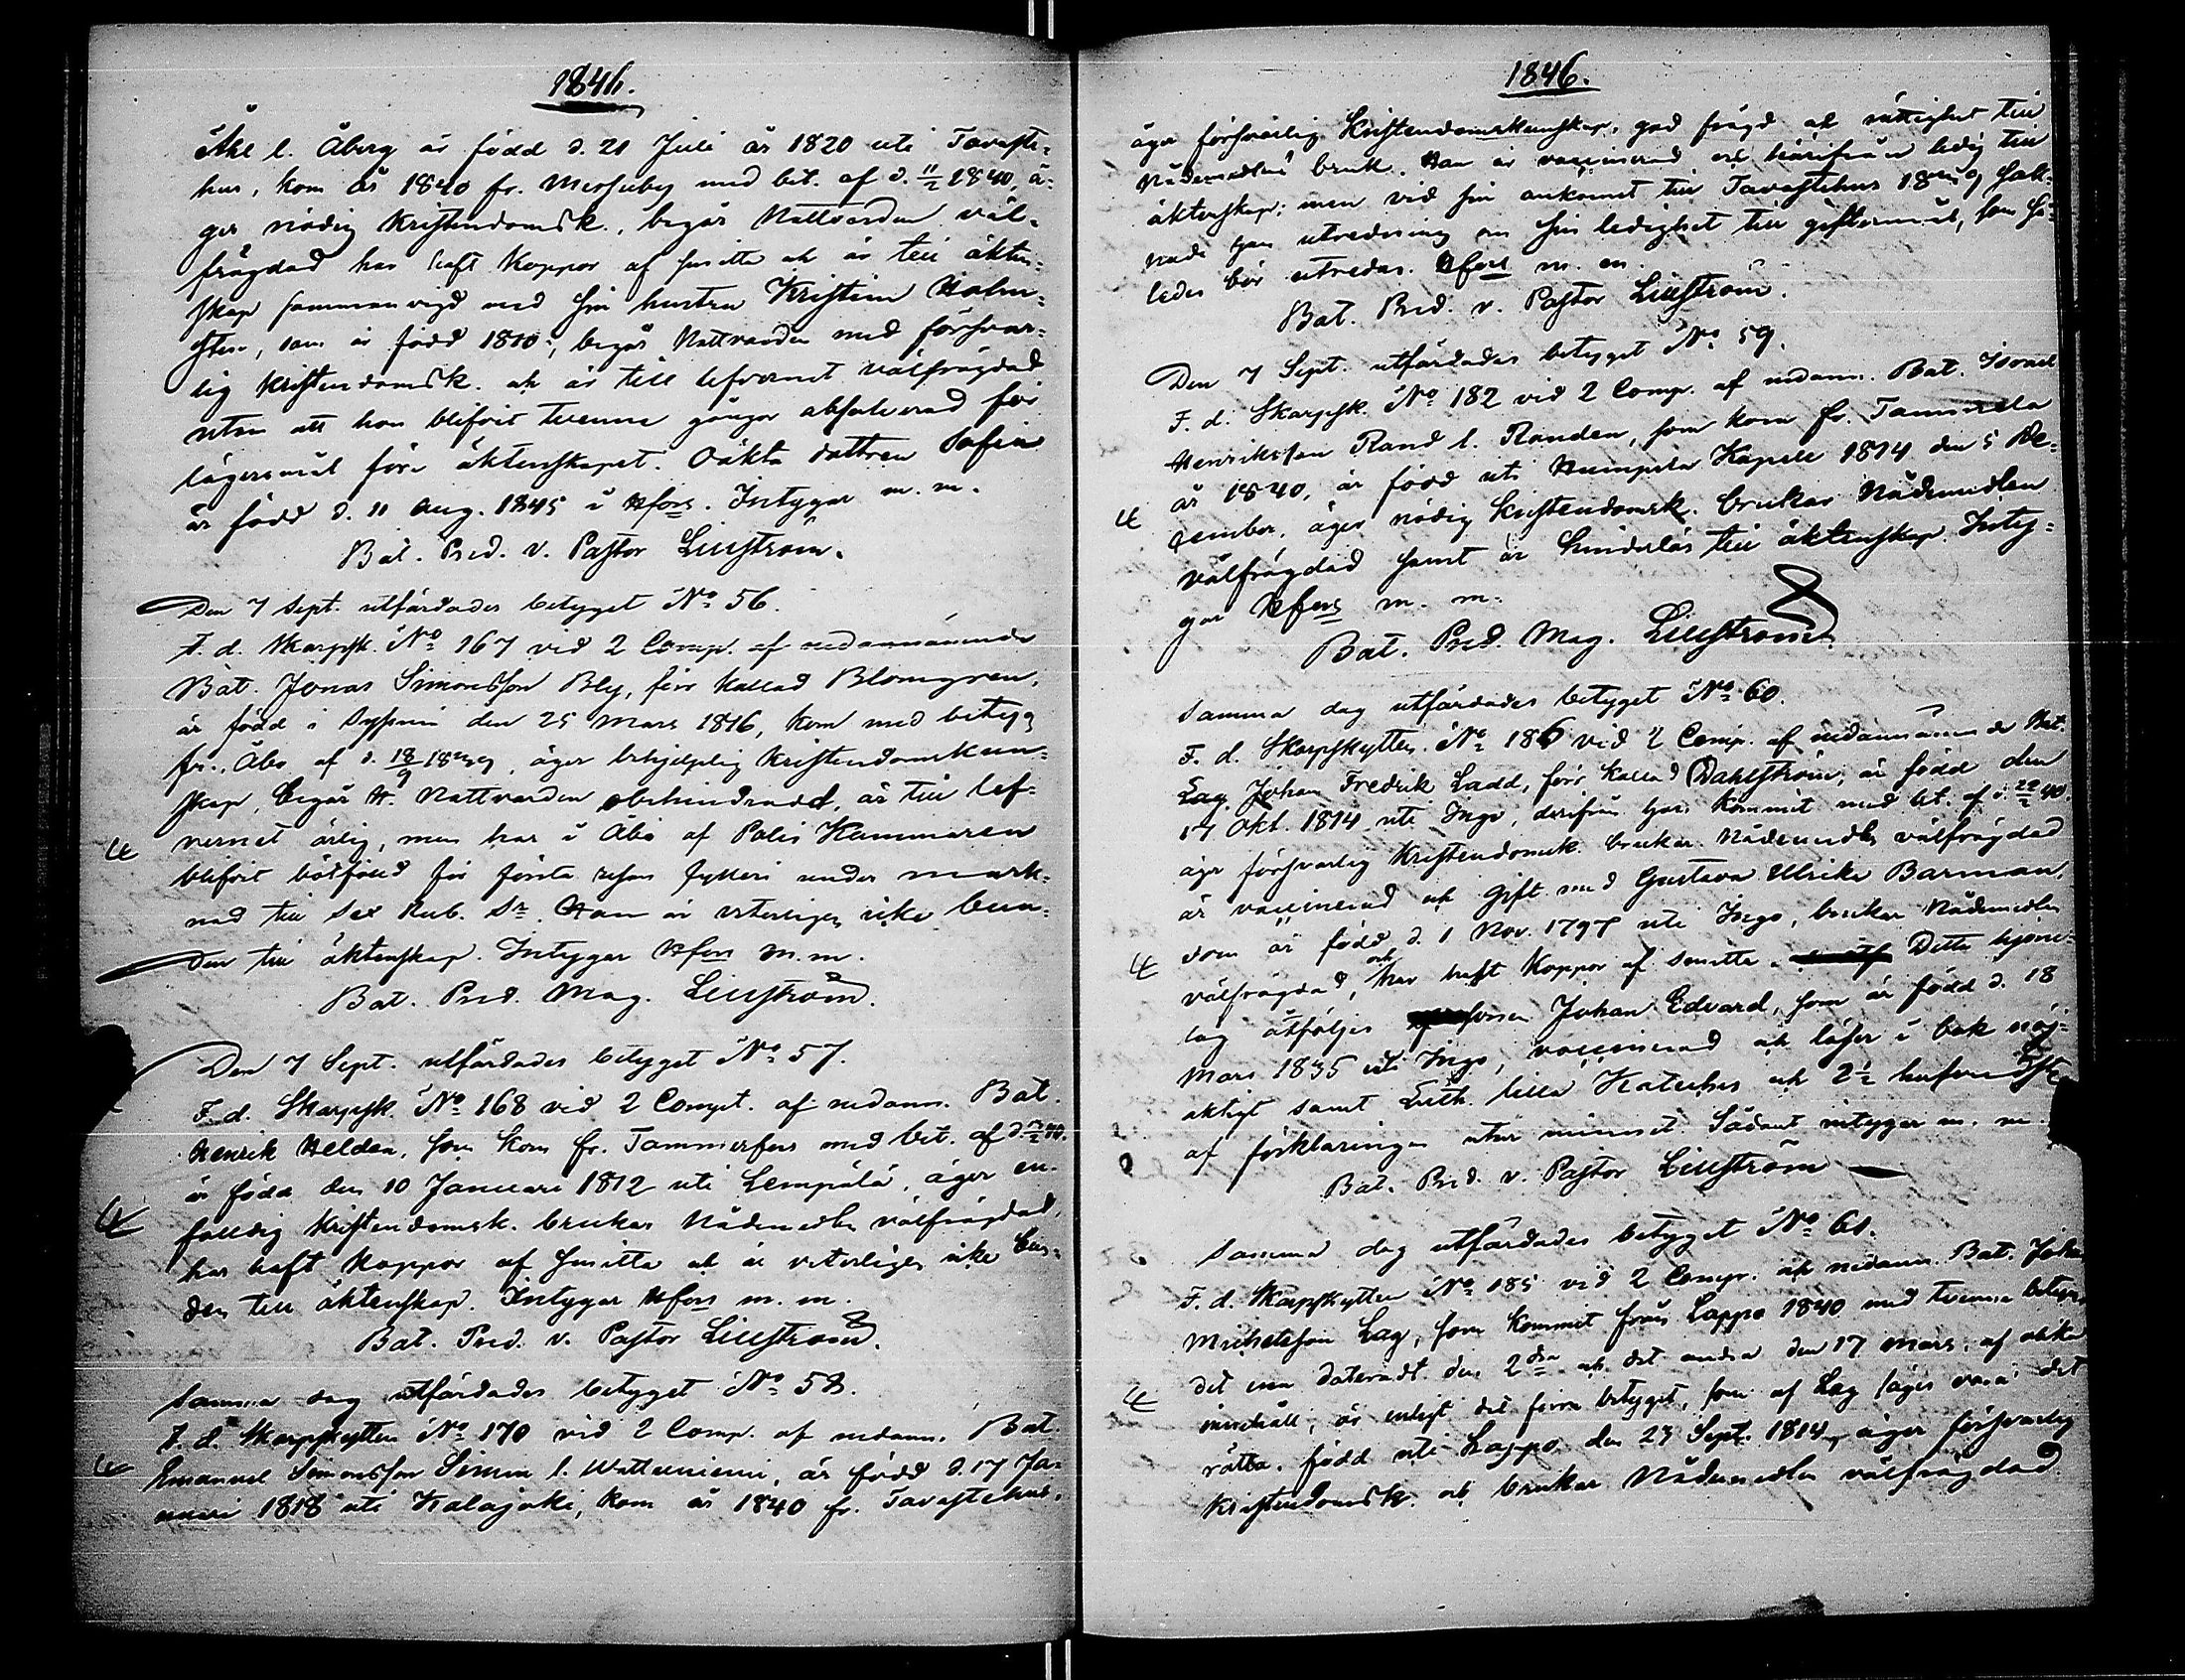 1846.
Åhl l. Åberg är född d. 21 Juli år 1820 uti Tavaste-
hus, kom år 1840 fr. med bet. af d. 11/2 1840, ä-
ger nödig Kristendomsk., begår Nattvarden väl-
frägdad har haft Koppor af smitta och är till ächten-
skap sammanvigd med sin hustru Kristina Holm-
sten, som är född 1810, begår Nattvarden med försvar-
lig Kristendomsk. och är till lefvernet välfrägdad
utom att hon blifvit tvenne gånger absolverad för
lägersmål före äktenskapet. Oäkta dottren Sofia
är född d. 11 Aug. 1845 i Hfors. Intygar m. m.
Bat. Pred. v. Pastor Liliuström.
Den 7 Sept. utfärdades betyget No 56.
F. d. Skarpsk. No 167 vid 2 Comp. af nedannämnde
Bat. Jonas Simonsson Bly, förr kallad Blomgren,
är född i den 25 Mars 1816, kom med betyg
fr. Åbo af d. 18/9 1839, äger behjelplig Kristendomskun-
skap, begår H. Nattvarden obehindrad, är till lef-
vernet ärlig, men har i Åbo af Polis Kammaren
blifvit bötfäld för första resan fylleri under mark-
nad till sex Rub. Sr. Han är veterligen icke bun-
den till äktenskap. Intygar Hfors m. m.
Bat. Pred. Mag. Liliuström.
Den 7 Sept. utfärdades betyget No 57.
F. d. Skarpsk. No 168 vid 2 Compt. af nedann. Bat.
Henrik Helden, som kom fr. Tammerfors med bet. af d. 40.
är född den 10 Januari 1812 uti Lempälä, äger en-
faldig Kristendomsk. brukar Nådemedlen välfrägdad,
har haft Koppor af smitta och är veterligen icke bun-
den till äktenskap. Intygar Hfors m. m.
Bat. Pred. v. Pastor Liliuström.
Samma dag utfärdades betyget No 58.
F. d. Skarpskytten No 170 vid 2 Comp. af nedann. Bat.
Emanuel Simonsson Simon l. Wattuniemi, är född d. 17 Ja-
nuari 1818 uti Kalajoki, kom år 1840 fr. Tavastehus,
1846.
äger försvarlig Kristendomskunskap, god frägd och rättighet till
Nådemedlens bruk. Han är vaccinerad och härifrån ledig till
äktenskap; men vid sin ankomst till Tavastehus 1839 sak-
nade han utredning om sin ledighet till giftermål, som så-
ledes bör utredas. Hfors m. m.
Bat. Pred. v. Pastor Liliuström.
Den 7 Sept. utfärdades betyget No 59.
F. d. Skarpsk. No 182 vid 2 Comp. af nedann. Bat. Israel
Henriksson Rand l. Randen, som kom fr. Tammela
år 1840, är född uti Humppila Kapell 1814 den 5 De-
cember, äger nödig Kristendomsk. brukar Nådemedlen
välfrägdad samt är hinderlös till äktenskap. Inty-
gar Hfors m. m.
Bat. Pred. Mag. Liliuström.
Samma dag utfärdades betyget No 60.
F. d. Skarpskytten No 186 vid 2 Comp. af nedannämnde Bat.
Lag Johan Fredrik Ladd, förr kallad Dahlström, är född den
17 Okt. 1814 uti Ingo, derifrån han kommit med bet. af d. 22/2 40.
äger försvarlig Kristendomsk. brukar Nådemedlen välfrägdad
är vaccinerad och gift med Gustava Ulrika Barman,
som är född d. 1 Nov. 1797 uti Ingo, brukar Nådemedlen
välfrägdad, och har haft Koppor af smitta. Detta hjone-
lag åtföljes sonen Johan Edvard, som är född d. 18
Mars 1835 uti Ingo, vaccinerad och läser i bok nöj-
aktigt samt Luth. lilla Kateches och 2½ hufvudst.
af förklaringen utur minnet. Sådant intygar m. m.
Bat. Pred. v. Pastor Liliuström
Samma dag utfärdades betyget No 61.
F. d. Skarpskytten No 185 vid 2 Comp. af nedann. Bat. Johan
Michelsson Lag, som kommit från Lappo 1840 med tvenne betyg,
det ena dateradt den 2dra och det andra den 17 Mars, af olika
innehåll, är enligt det förra betyget, som af Lag säges vara det
rätta, född uti Lappo den 23 Sept. 1814, äger försvarlig
Kristendomsk. och brukar Nådemedlen välfrägdad